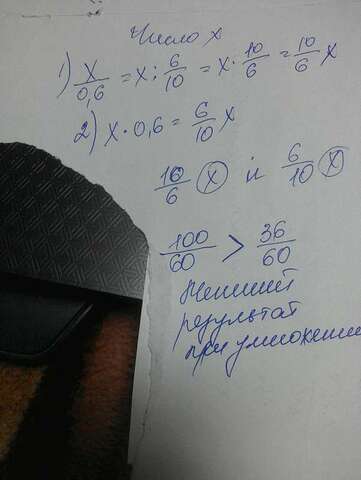 Число x
1) x/0,6 = x : 6/10 = x · 10/6 = 10/6 x
2) x · 0,6 = 6/10 x
10/6 (x) и 6/10 (x)
100/60 > 36/60
Меньший
результат
при умножении